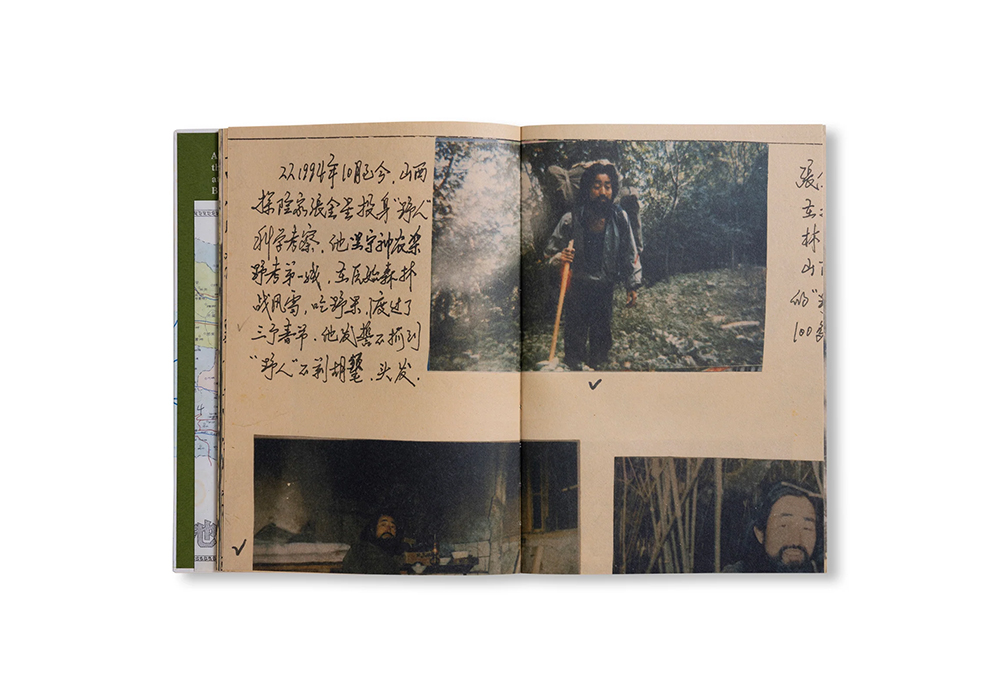 22.1994年10月已今,山西
探险家張金星投身“野人”
科学考察,他坚守神农架
野考第一线,在原始森林
战风雪,吃野果,渡过了
三个春节.他发誓不抓到
“野人”不剃胡鬚、头发.
張
在
林
山
的“
100